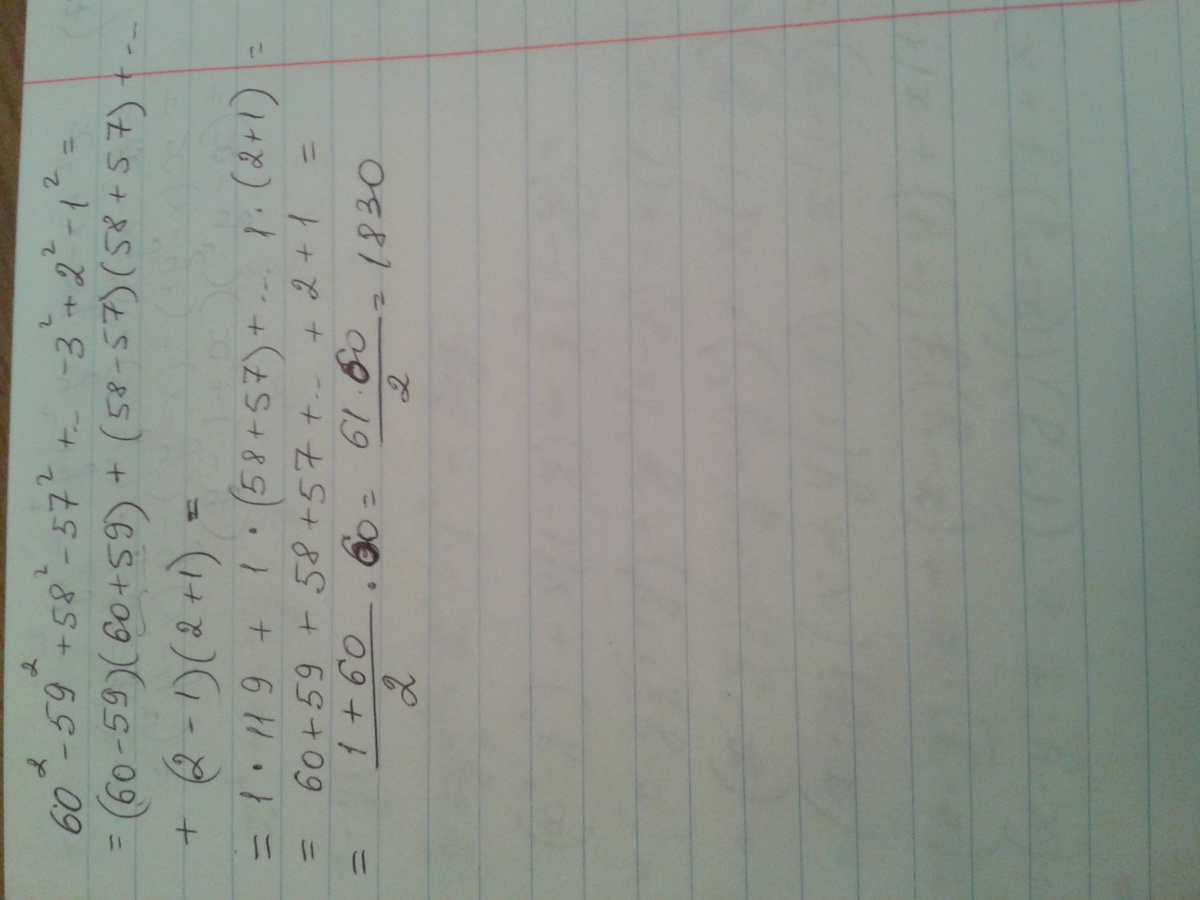 60² - 59² + 58² - 57² + ... - 3² + 2² - 1² =
= (60 - 59)(60 + 59) + (58 - 57)(58 + 57) + ...
+ (2 - 1)(2 + 1) =
= 1 · 119 + 1 · (58 + 57) + ... 1 · (2 + 1) =
= 60 + 59 + 58 + 57 + ... + 2 + 1 =
= \frac{1 + 60}{2} · 60 = \frac{61 · 60}{2} = 1830